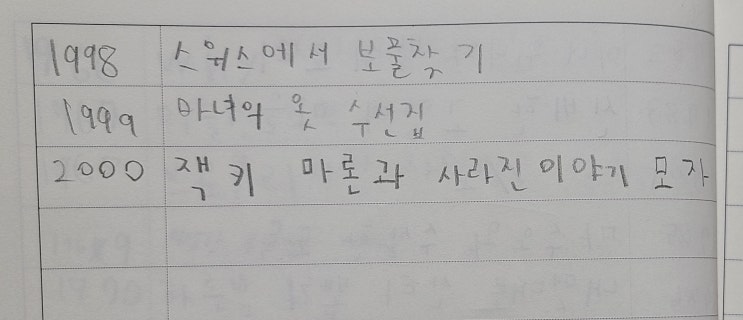 1998 스위스에서 보물찾기
1999 마녀의 옷 수선집
2000 잭키 마론과 사라진 이야기 모자